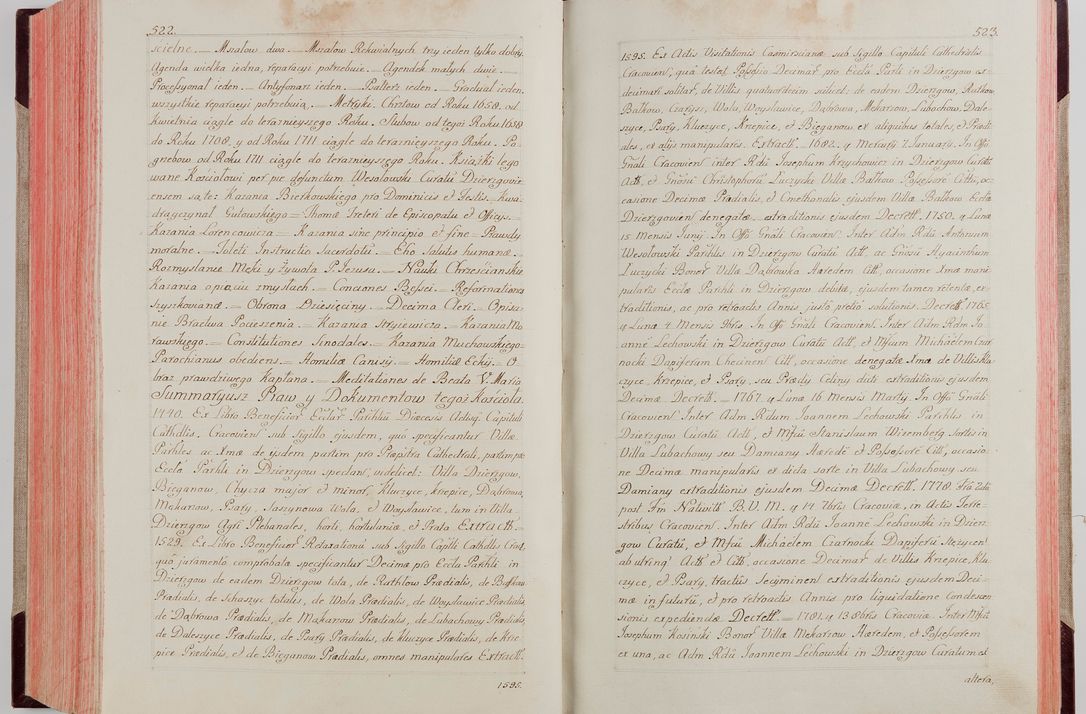 522.
scielne. — Mszałow dwa. — Mszałow Rekwialnych trzy ieden tylko dobry.
Agenda wielka iedna, reparacyi potrzebuie. — Agendek małych dwie. —
Processyonał ieden. — Antyfonarz ieden. — Psałterz ieden. — Graduał ieden.
wszystkie reparacyi potrzebuią. — Metryki. Chrztow od Roku 1658. od
kwietnia ciągle do teraznieyszego Roku. Slubow od tegoż Roku 1658
do Roku 1708, y od Roku 1711 ciągle do teraznieyszego Roku. Po-
grzebow od Roku 1711 ciągle do teraznieyszego Roku. Książki lego
wane Kościołowi per pie defunctum Wesołowski Curatū Dzierzgovie
ensem są te: Kazania Bierkowskiego pro Dominicis et Festis. — Kwa-
dragezynał Gutowskiego — Thomæ Treteri de Episcopatu et Officys. —
Kazania Lorencowicza — Kazania sine principio et fine — Prawdy
moralne. — Toleti Instructio Sacerdotū — Eho salutis humanæ. —
Rozmyslanie Męki y Zywota P. Jezusa. — Nauki Chrzescianskie
Kazania o pięciu zmysłach. — Conciones Bessei. — Reformationes
Szyszkovianæ. — Obrona Dziesięciny. — Decima Cleri. — Opisa-
nie Bractwa Pocieszenia. — Kazania Stryiewicza. — Kazania Mo
rawskiego. — Constitutiones Sinodales. — Kazania Muchowskiego
Parochianus obediens. — Homiliæ Canisÿ. — Homiliæ Eckÿ. — O-
braz prawdziwego Kapłana. — Meditationes de Beata V. Maria
Summaryusz Praw y Dokumentow tegoż Kościoła.
1440. Ex Libro Beneficior Ecclar Parihliū Diœcesis Actisq Capituli
Cathdlis. Cracovien sub sigillo ejusdem, quō specificantur Villæ
Parhles ac Xmæ de ijsdem partim pro Præptra Cathedrali, partim pro
Eccla Parhli in Dzierzgow spectant, videlicet: Villa Dzierzgow,
Bieganow, Chycza major et minor, Kluczyce, Krzepice, Dąbrowa,
Makarow, Psary, Jaszynowa Wola, et Woysławice, tum in Villa
Dzierzgow Agri Plebanales, horti, hortulaniæ, et Prata Extractt. —
1529. Ex Libro Beneficior Retaxationū sub Sigillo Capitli Cathdlis Crac.
quō juramento comprobata specificantur Decimæ pro Eccla Parhli in
Dzierzgow de eadem Dzierzgow tota, de Rathkow Prædialis, de Bałkow
Prædialis, de Schaszyc totales, de Wola Prædialis, de Woysławice Prædialis,
de Dąbrowa Prædialis, de Makarow Prædialis, de Lubachowy Prædialis,
de Daleszyce Prædialis, de Psary Prædialis, de Kluczyce Prædialis, de Krze
pice Prædialis, et de Bieganow Prædialis, omnes manipulares Extractt.
1595.
523.
1595. Ex Actis Visitationis Casimirscianæ sub Sigillo Capituli Cathedralis
Cracovien, quā testat Possessio Decimar pro Eccla Parhli in Dzierzgow ex-
decimari solitar, de Villis quatuordecim scilicet: de eadem Dzierzgow, Ratkow
Bałkow, Czaryżz, Wola, Woysławice, Dąbrowa, Mekarzow, Lubachow, Dale-
szyce, Psary, Kluczyce, Krzepice, et Bieganow ex aliquibus totales, et Prædi
ales, ex alijs manipulares. Extractt. — 1682. q Mercurÿ 7. Januarÿ. In Offō
Gnāli Cracovien inter Rdū Josephum Krzychowicz in Dzierzgow Curātū
Actt, et Gnōsū Christophorū Łuczycki Villæ Bałkow Possessorē Cittū, oc-
casione Decimæ Prædialis, et Cmethonalis ejusdem Villæ Balkow Eccla
Dzierzgovien denegatæ. extraditionis ejusdem Decrett. 1750. q Lunæ
15 Mensis Junÿ. In Offō Gnāli Cracovien. Inter Adm Rdū Antonium
Wesołowski Parhlis in Dzierzgow Curatū Actt, ac Gnōsū Hyacinthum
Łuczycki Bonor Villæ Dąbrowka Hæredem Citt, occasione Xmæ mani
pularis Ecclæ Parihli in Dzierzgow debitæ, ejusdem tamen retentæ, ex-
traditionis, ac pro retroactis Annis justō pretiō solutionis. Decrett. 1765.
q Lunæ 4. Mensis 9bris. In Offō Gnāli Cracovien. Inter Adm Rdm Jo
annē Lechowski in Dzierzgow Curatū Actt, et Mfcum Michaēlem Czar
nocki Dapiferum Chęcinen Citt, occasione denegatæ Xmæ de Villis Klu
czyce, Krzepice, et Psary, seu Prædy Celiny dutæ extraditionis ejusdem
Decimæ Decrett. — 1767. q Lunæ 16 Mensis Martÿ. In Offō Gnāli
Cracovien. Inter Adm Rdum Joannem Lechowski Parihlis in
Dzierzgow Curatū Actt, et Mfcū Stanislaum Wizemberg sortis in
Villa Lubachowy seu Damiany Hæredē et Possessorē Citt, occasio-
ne Decimæ manipularis ex dicta sorte in Villa Lubachowy, seu
Damiany extraditionis ejusdem Decimæ Decrett. 1778. Frā 2da
post Fm Nativitt B.V.M. q 14. 7bris Cracoviæ, in Actis Terre-
stribus Cracovien. Inter Adm Rdū Joannē Lechowski in Dzierz
gow Curatū, et Mfcū Michaēlem Czarnocki Dapiferū Stężycen
ab utrinq Actt et Citt, occasione Decimar de Villis Krzepice, Klu-
czyce, et Psary, tractus Secyminen extraditionis ejusdem Deci-
mæ in futurū, et pro retroactis Annis pro liquidatione Condescen
sionis expediendæ Decrett. — 1781. q 13 8bris Cracoviæ. Inter Mfcū
Josephum Kosinski Bonor Villæ Mekarzow Hæredem, et Possessorem
ex una, ac Adm Rdū Joannem Lechowski in Dzierzgow Curatum ex
altera,